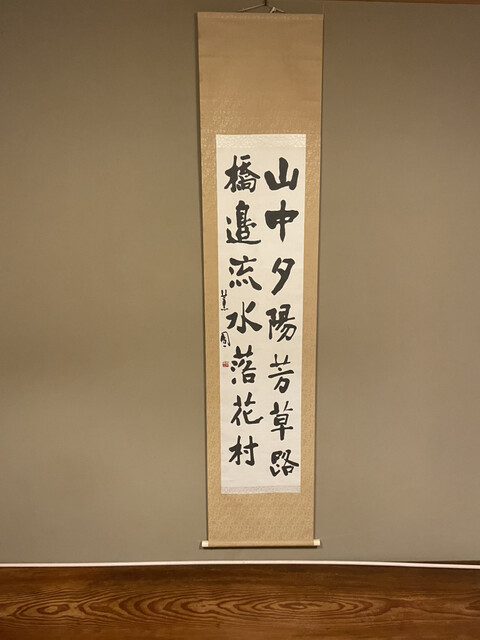 山中夕陽芳草路
橋邉流水落花村